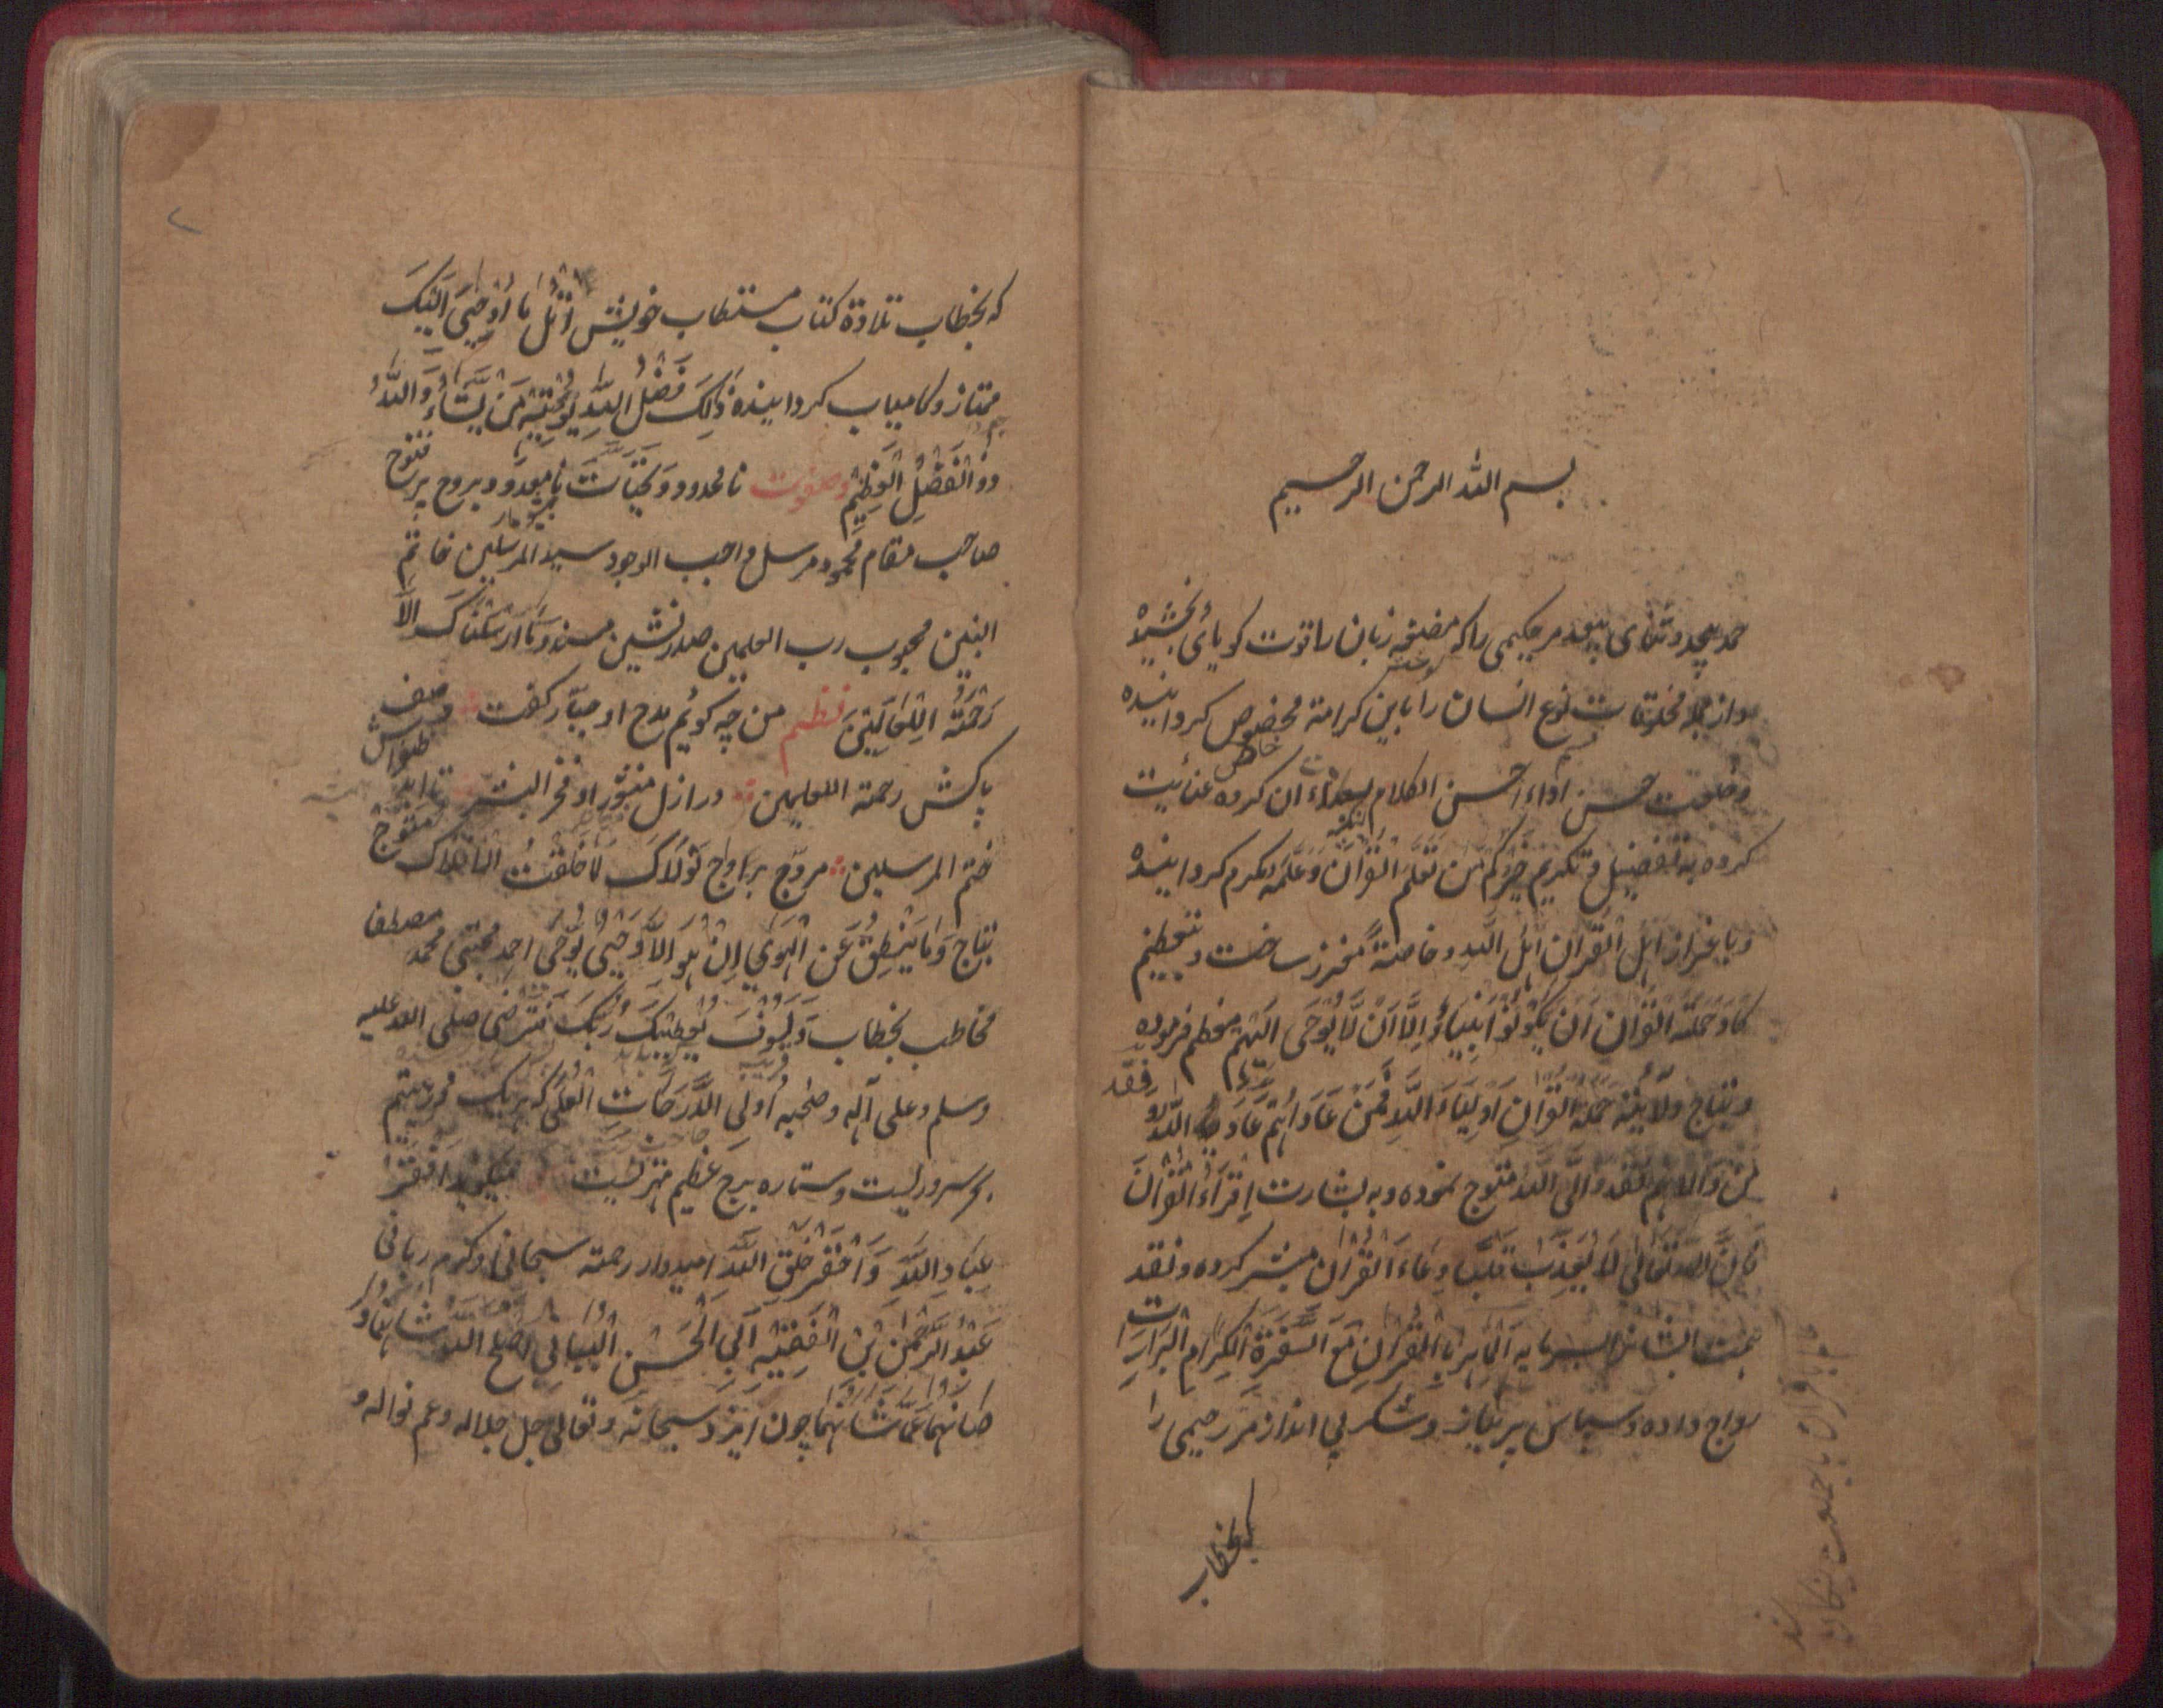 بسم الله الرحمن الرحيم
حمد بیحد و ثنای بیعد مر حکیمی را که مضغه زبان را قوت کویائی بخشیده
و از جمله مخلوقات نوع انسان را باین کرامة مخصوص کردانیده
و خلعت حسن اداء احسن الکلام ان کرده عنائیت
کرده به تفضیل و تکریم خَیْرُکُم مَن تَعَلَّمَ الْقُرْآنَ وَعَلَّمَه مکرم کردانیده
و باعزاز اهل القرآن اهل اللّه و خاصتهٔ ساخت و بتعظیم
کَادَ حَمَلَةُ الْقُرْآنِ اَنْ یَکُوْنُوْا اَنْبِیَاءُ اِلَّا اَنْ لَّا یُوْحَی اِلَیْهِمْ معظم فرموده
و بتاج حَمَلَةُ الْقُرْآنِ اَوْلِیَاءُ اللّهِ فَمَنْ عَادَاهُمْ اللّهَ
فقد
مَنْ وَالَاهُمْ فَقَدْ وَالَی اللّهَ متوج نموده و به بشارت اِقْرَاءُ الْقُرْآنَ
فَاِنَّ اللّهَ تَعَالٰی لَا یُعَذِّبُ قَلْبًا وِعَاءَ الْقُرْآنِ مبشر کرده و نقد
همت الشان بسرمایه اَلْمَاهِرُ بِالْقُرْآنِ مَعَ السَّفَرَةِ الْکِرَامِ الْبَرَرَةِ
رواج داده و سپاس پر نیاز و شکر بی انداز مر رحیمی را
که بخطاب
که بخطاب تلاوة کتاب مستطاب خویش اُتْلُ مَا اُوْحِیَ اِلَیْکَ
ممتاز و کامیاب کردانیده ذٰلِکَ فَضْلُ اللّهِ یُؤْتِیْهِ مَنْ یَّشَاءُ وَاللّهُ
ذُو الْفَضْلِ الْعَظِیْمِ و صلوت نامحدود و تحیات نامعدود بروح پر فتوح
صاحب مقام محمود مرسل واجب الوجود سید المرسلین خاتم
النبین محبوب رب العلمین صدر نشین مسند وَمَا اَرْسَلْنَاکَ اِلَّا
رَحْمَةً لِلْعَالَمِیْنَ نظم من چه کویم مدح او جبّار کفت وصف
پاکش رحمة اللعلمین در ازل او فخر البشر تا ابد
ختم المرسلین مروّج براواج لَوْلَاکَ لَمَا خَلَقْتُ الْاَفْلَاکَ متوج
بتاج وَمَا یَنْطِقُ عَنِ الْهَوٰی اِنْ هُوَ اِلَّا وَحْیٌ یُّوْحٰی احمد مجتبی محمد مصطفا
مخاطب بخطاب وَلَسَوْفَ یُعْطِیْکَ رَبُّکَ فَتَرْضٰی صلی الله علیه
وسلم و علی آله و صحبه اُولِی الدَّرَجَاتِ الْعُلٰی که هریک
سروریست و ستاره برج عظیم میکوید افقر
عِبَادِ اللّهِ وَاَحْقَرُ خَلْقِ اللّهِ امیدوار رحمة سبحانی و کرم ربانی
عَبْدُ الرَّحْمٰنِ بْنُ الْفَقِیْهِ اَبِی الْحَسَنِ اَصْلَحَ اللّهُ شانهما و
صَانَهُمَا عَمَّا شَانَهُمَا چون ایزد سبحانه و تعالی جل جلاله و عم نواله و